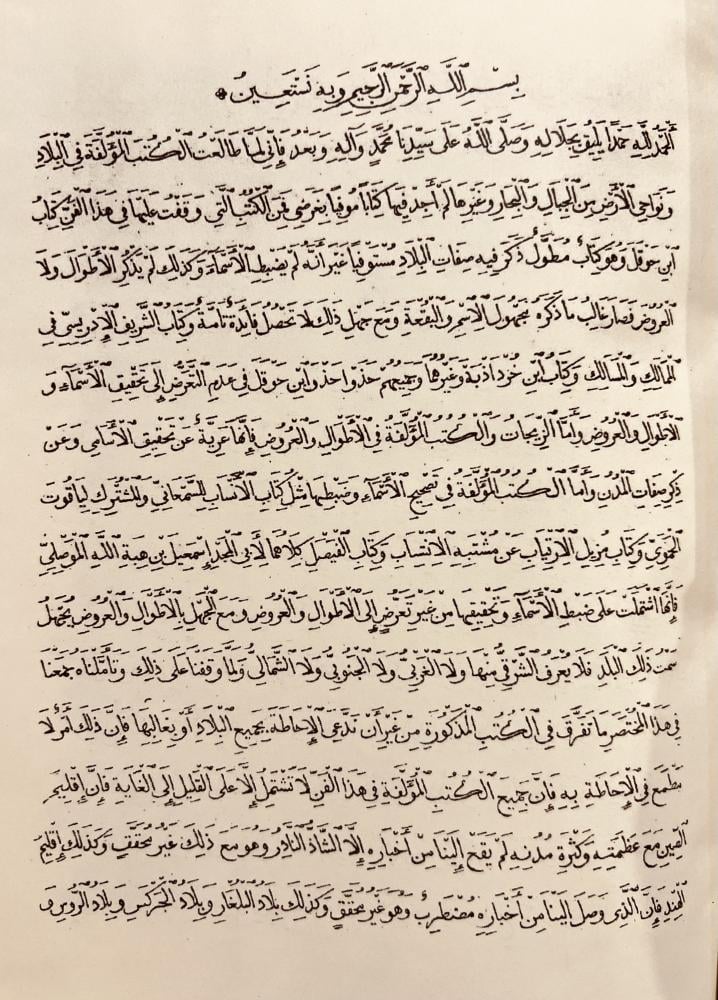 بِسْمِ اللَّهِ الرَّحْمَنِ الرَّحِيمِ وَبِهِ نَسْتَعِينُ
الْحَمْدُ لِلَّهِ حَمْدًا يَلِيقُ بِجَلَالِهِ وَصَلَّى اللَّهُ عَلَى سَيِّدِنَا مُحَمَّدٍ وَآلِهِ وَبَعْدُ فَإِنِّي لَمَّا طَالَعْتُ الْكُتُبَ الْمُؤَلَّفَةَ فِي الْبِلَادِ
وَنَوَاحِي الْأَرْضِ مِنَ الْجِبَالِ وَالْبِحَارِ وَغَيْرِهَا لَمْ أَجِدْ فِيهَا كِتَابًا مُوفِيًا بِغَرَضِي فَمِنَ الْكُتُبِ الَّتِي وَقَفْتُ عَلَيْهَا فِي هَذَا الْفَنِّ كِتَابُ
ابْنِ حَوْقَلٍ وَهُوَ كِتَابٌ مُطَوَّلٌ ذَكَرَ فِيهِ صِفَاتِ الْبِلَادِ مُسْتَوْفِيًا غَيْرَ أَنَّهُ لَمْ يَضْبِطِ الْأَسْمَاءَ وَكَذَلِكَ لَمْ يَذْكُرِ الْأَطْوَالَ وَلَا
الْعُرُوضَ فَصَارَ غَالِبُ مَا ذَكَرَهُ مَجْهُولَ الْاِسْمِ وَالْبُقْعَةِ وَمَعَ جَهْلِ ذَلِكَ لَا تَحْصُلُ فَائِدَةٌ تَامَّةٌ وَكِتَابُ الشَّرِيفِ الْإِدْرِيسِيِّ فِي
الْمَمَالِكِ وَالْمَسَالِكِ وَكِتَابُ ابْنِ خُرْدَاذْبَةَ وَغَيْرُهُمَا وَجَمِيعُهُمْ حَذَوْا حَذْوَ ابْنِ حَوْقَلٍ فِي عَدَمِ التَّعَرُّضِ إِلَى تَحْقِيقِ الْأَسْمَاءِ وَ
الْأَطْوَالِ وَالْعُرُوضِ وَأَمَّا الزِّيجَاتُ وَالْكُتُبُ الْمُؤَلَّفَةُ فِي الْأَطْوَالِ وَالْعُرُوضِ فَإِنَّهَا عَرِيَّةٌ عَنْ تَحْقِيقِ الْأَسَامِي وَعَنْ
ذِكْرِ صِفَاتِ الْمُدُنِ وَأَمَّا الْكُتُبُ الْمُؤَلَّفَةُ فِي تَصْحِيحِ الْأَسْمَاءِ وَضَبْطِهَا مِثْلُ كِتَابِ الْأَنْسَابِ لِلسَّمْعَانِيِّ وَالْمُشْتَرِكِ لِيَاقُوتَ
الْحَمَوِيِّ وَكِتَابِ مُزِيلِ الْاِرْتِيَابِ عَنْ مُشْتَبِهِ الْاِنْتِسَابِ وَكِتَابِ الْفَيْصَلِ كِلَاهُمَا لِأَبِي الْمَجْدِ إِسْمَعِيلَ بْنِ هِبَةِ اللَّهِ الْمَوْصِلِيِّ
فَإِنَّهَا اشْتَمَلَتْ عَلَى ضَبْطِ الْأَسْمَاءِ وَتَحْقِيقِهَا مِنْ غَيْرِ تَعَرُّضٍ إِلَى الْأَطْوَالِ وَالْعُرُوضِ وَمَعَ الْجَهْلِ بِالْأَطْوَالِ وَالْعُرُوضِ يُجْهَلُ
سَمْتُ ذَلِكَ الْبَلَدِ فَلَا يُعْرَفُ الشَّرْقِيُّ مِنْهَا وَلَا الْغَرْبِيُّ وَلَا الْجَنُوبِيُّ وَلَا الشَّمَالِيُّ وَلَمَّا وَقَفْنَا عَلَى ذَلِكَ وَتَأَمَّلْنَاهُ جَمَعْنَا
فِي هَذَا الْمُخْتَصَرِ مَا تَفَرَّقَ فِي الْكُتُبِ الْمَذْكُورَةِ مِنْ غَيْرِ أَنْ نَدَّعِيَ الْإِحَاطَةَ بِجَمِيعِ الْبِلَادِ أَوْ بِغَالِبِهَا فَإِنَّ ذَلِكَ أَمْرٌ لَا
مَطْمَعَ فِي الْإِحَاطَةِ بِهِ فَإِنَّ جَمِيعَ الْكُتُبِ الْمُؤَلَّفَةِ فِي هَذَا الْفَنِّ لَا تَشْتَمِلُ إِلَّا عَلَى الْقَلِيلِ إِلَى الْغَايَةِ فَإِنَّ إِقْلِيمَ
الصِّينِ مَعَ عَظَمَتِهِ وَكَثْرَةِ مُدُنِهِ لَمْ يَقَعْ إِلَيْنَا مِنْ أَخْبَارِهِ إِلَّا الشَّاذُّ النَّادِرُ وَهُوَ مَعَ ذَلِكَ غَيْرُ مُحَقَّقٍ وَكَذَلِكَ إِقْلِيمُ
الْهِنْدِ فَإِنَّ الَّذِي وَصَلَ إِلَيْنَا مِنْ أَخْبَارِهِ مُضْطَرِبٌ وَهُوَ غَيْرُ مُحَقَّقٍ وَكَذَلِكَ بِلَادُ الْبُلْغَارِ وَبِلَادُ الْجَرْكَسِ وَبِلَادُ الرُّوسِ وَ